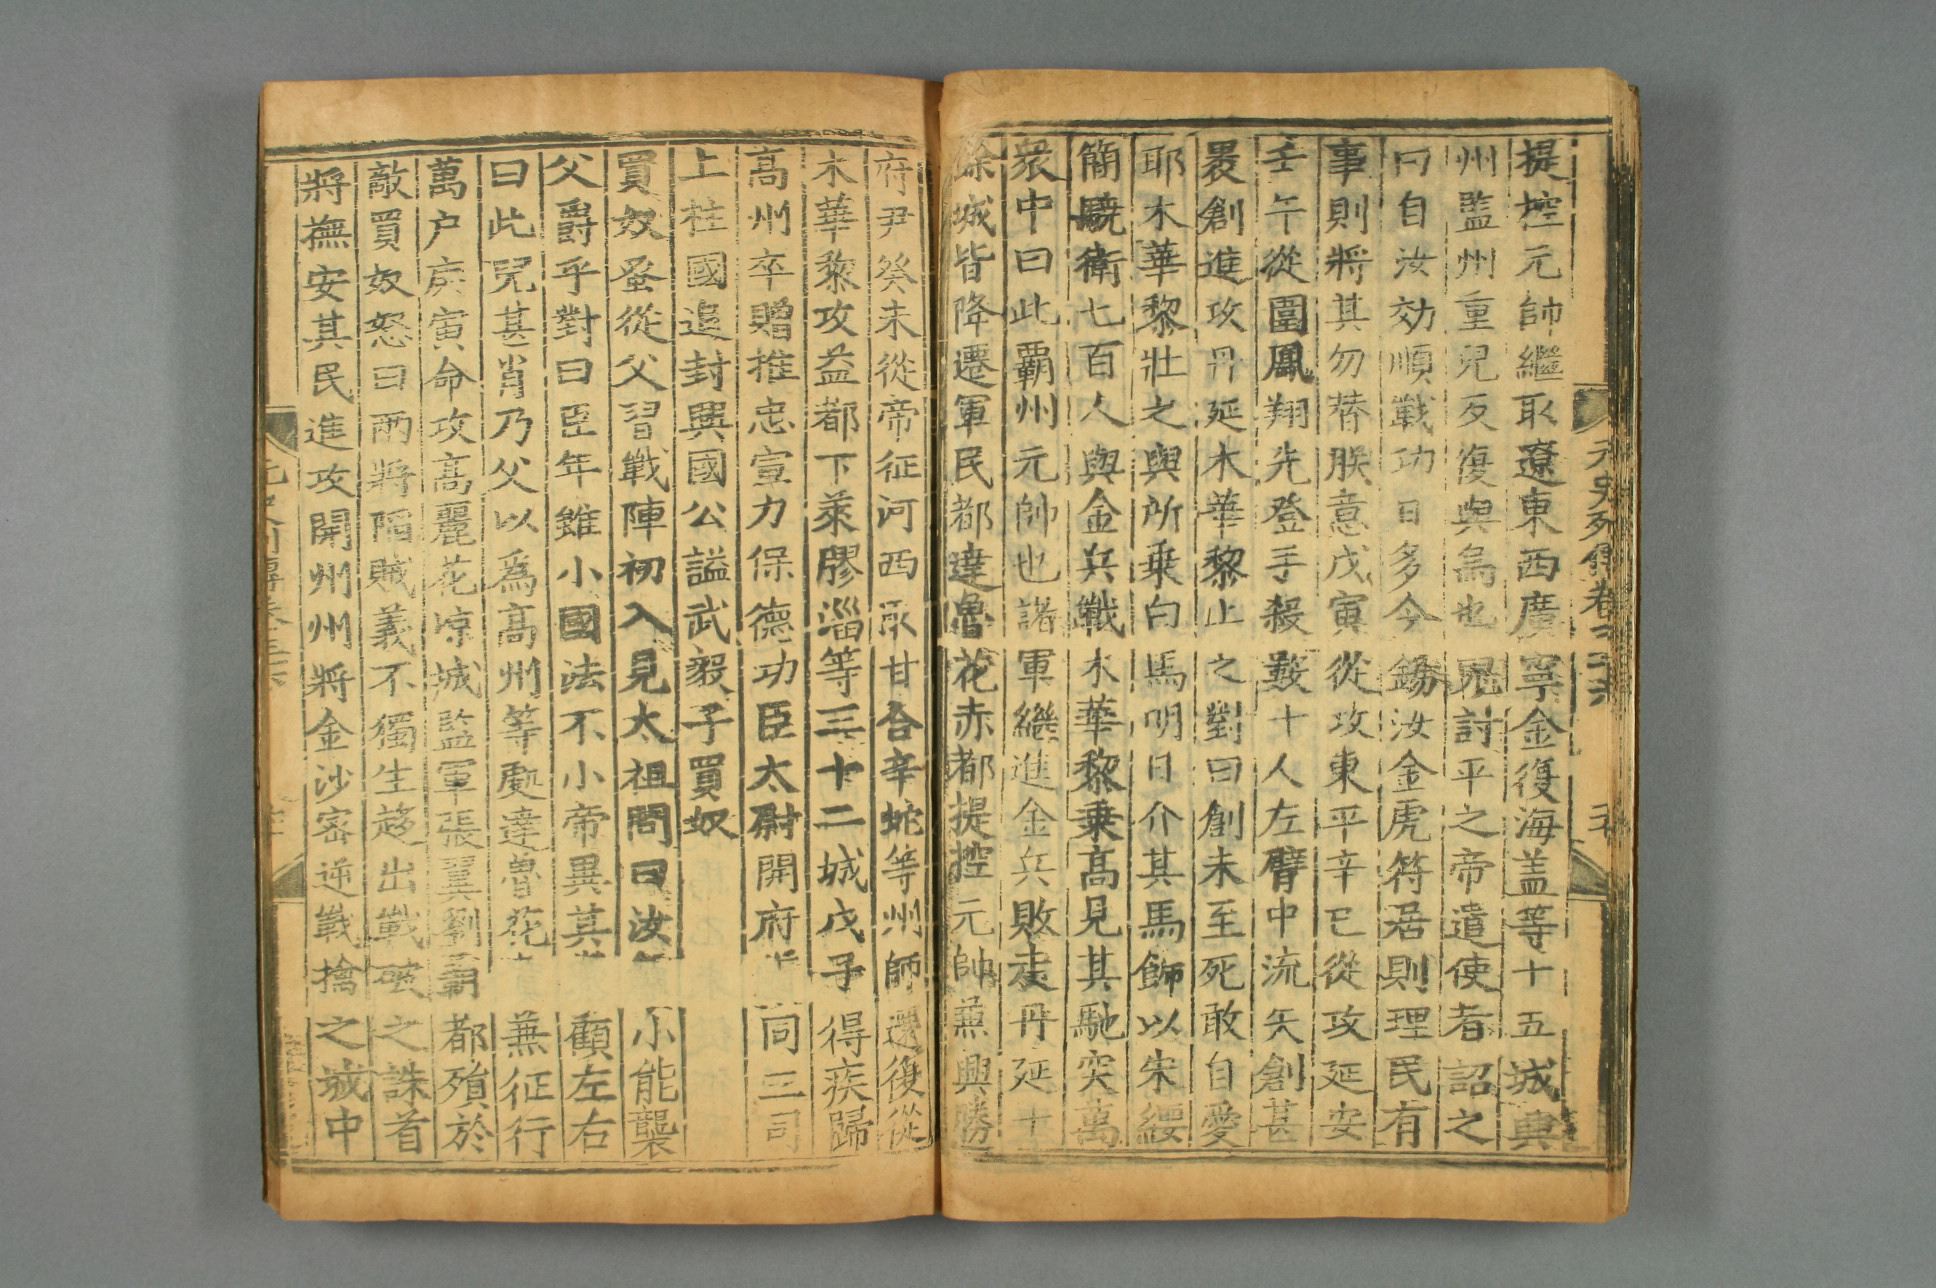 提控元帥繼取遼東西廣寧金復海盖等十五城興
州監州重兒反復與焉也児討平之帝遣使者詔之
曰自汝効順戰功日多今錫汝金虎符居則理民有
事則將其勿替朕意戊寅從攻東平辛巳從攻延安
壬午從圍鳳翔先登手殺數十人左臂中流矢創甚
裹創進攻丹延木華黎止之對曰創未至死敢自愛
耶木華黎壯之與所乗白馬明日介其馬飾以朱纓
簡驍衛七百人與金兵戰木華黎乗高見其馳突萬
衆中曰此覇州元帥也諸軍繼進金兵敗走丹延十
餘城皆降遷軍民都達魯花赤都提控元帥兼興勝
府尹癸未從帝征河西取甘合辛蛇等州師還復從
木華黎攻益都下萊膠淄等三十二城戊子得疾歸
高州卒贈推忠宣力保德功臣太尉開府 同三司
上柱國追封興國公謚武毅子買奴
買奴蚤從父習戰陣初入見太祖問曰汝 小能襲
父爵乎對曰臣年雖小國法不小帝異其 顧左右
曰此兒甚肖乃父以爲高州等處達魯花 兼征行
萬户庚寅命攻高麗花凉城監軍張翼劉覇都殞於
敵買奴怒曰兩將陷賊義不獨生趍出戰破之誅首
將撫安其民進攻開州州將金沙密逆戰擒之城中
元史列傳卷三十六